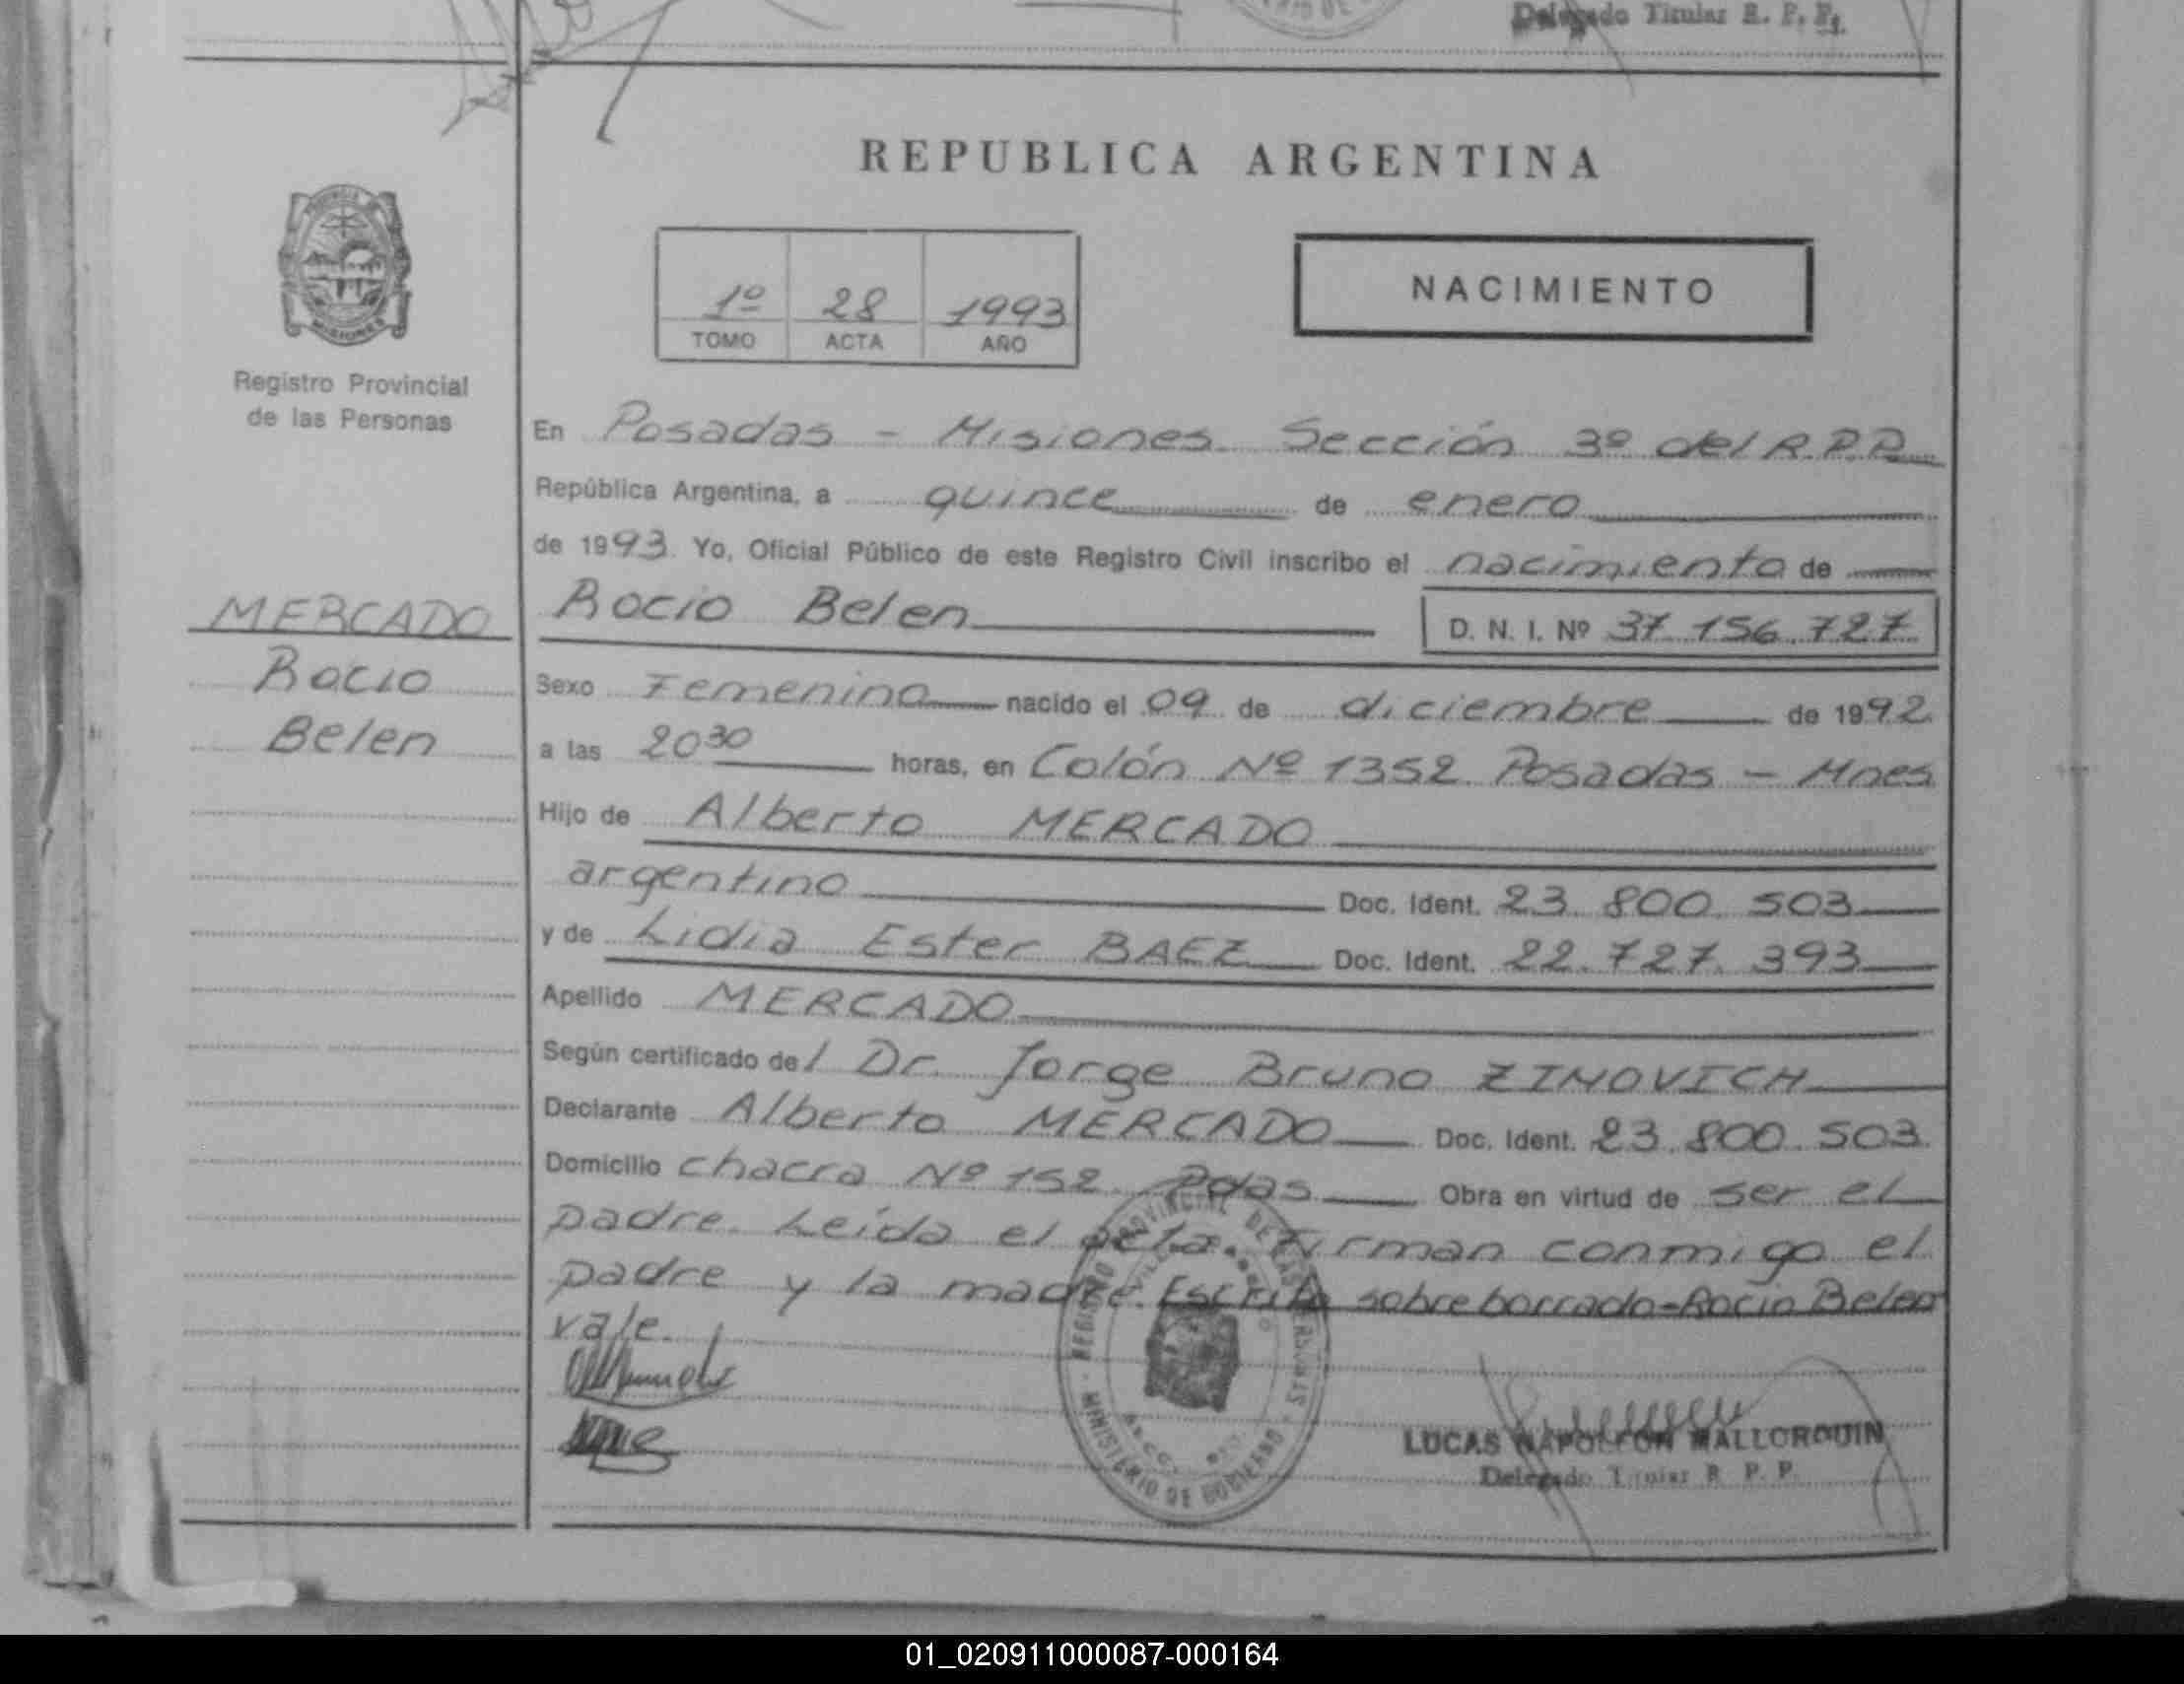 Delegado Titular R. P. P.
REPUBLICA ARGENTINA
1º 28 1993
TOMO ACTA AÑO
NACIMIENTO
MISIONES
Registro Provincial
de las Personas
MERCADO
Rocio
Belen
En Posadas - Misiones Sección 3º del R.P.P.
República Argentina, a quince de enero
de 1993. Yo, Oficial Público de este Registro Civil inscribo el nacimiento de
Rocio Belen D. N. I. Nº 37.156.727
Sexo Femenino nacido el 09 de diciembre de 1992
a las 20 30 horas, en Colón Nº 1352 Posadas - Mnes
Hijo de Alberto MERCADO
argentino Doc. Ident. 23.800.503
y de Lidia Ester BAEZ Doc. Ident. 22.727.393
Apellido MERCADO
Según certificado del Dr. Jorge Bruno ZIMOVICH
Declarante Alberto MERCADO Doc. Ident. 23.800.503
Domicilio chacra Nº 152 Pdas Obra en virtud de ser el
padre. Leída el acta. Firman conmigo el
padre y la madre. Escrito sobreborrado-Rocio Belen
vale.
REGISTRO PROVINCIAL DE LAS PERSONAS
MINISTERIO DE GOBIERNO
LUCAS NAPOLEON MALLORQUIN
Delegado Titular R. P. P.
01_020911000087-000164